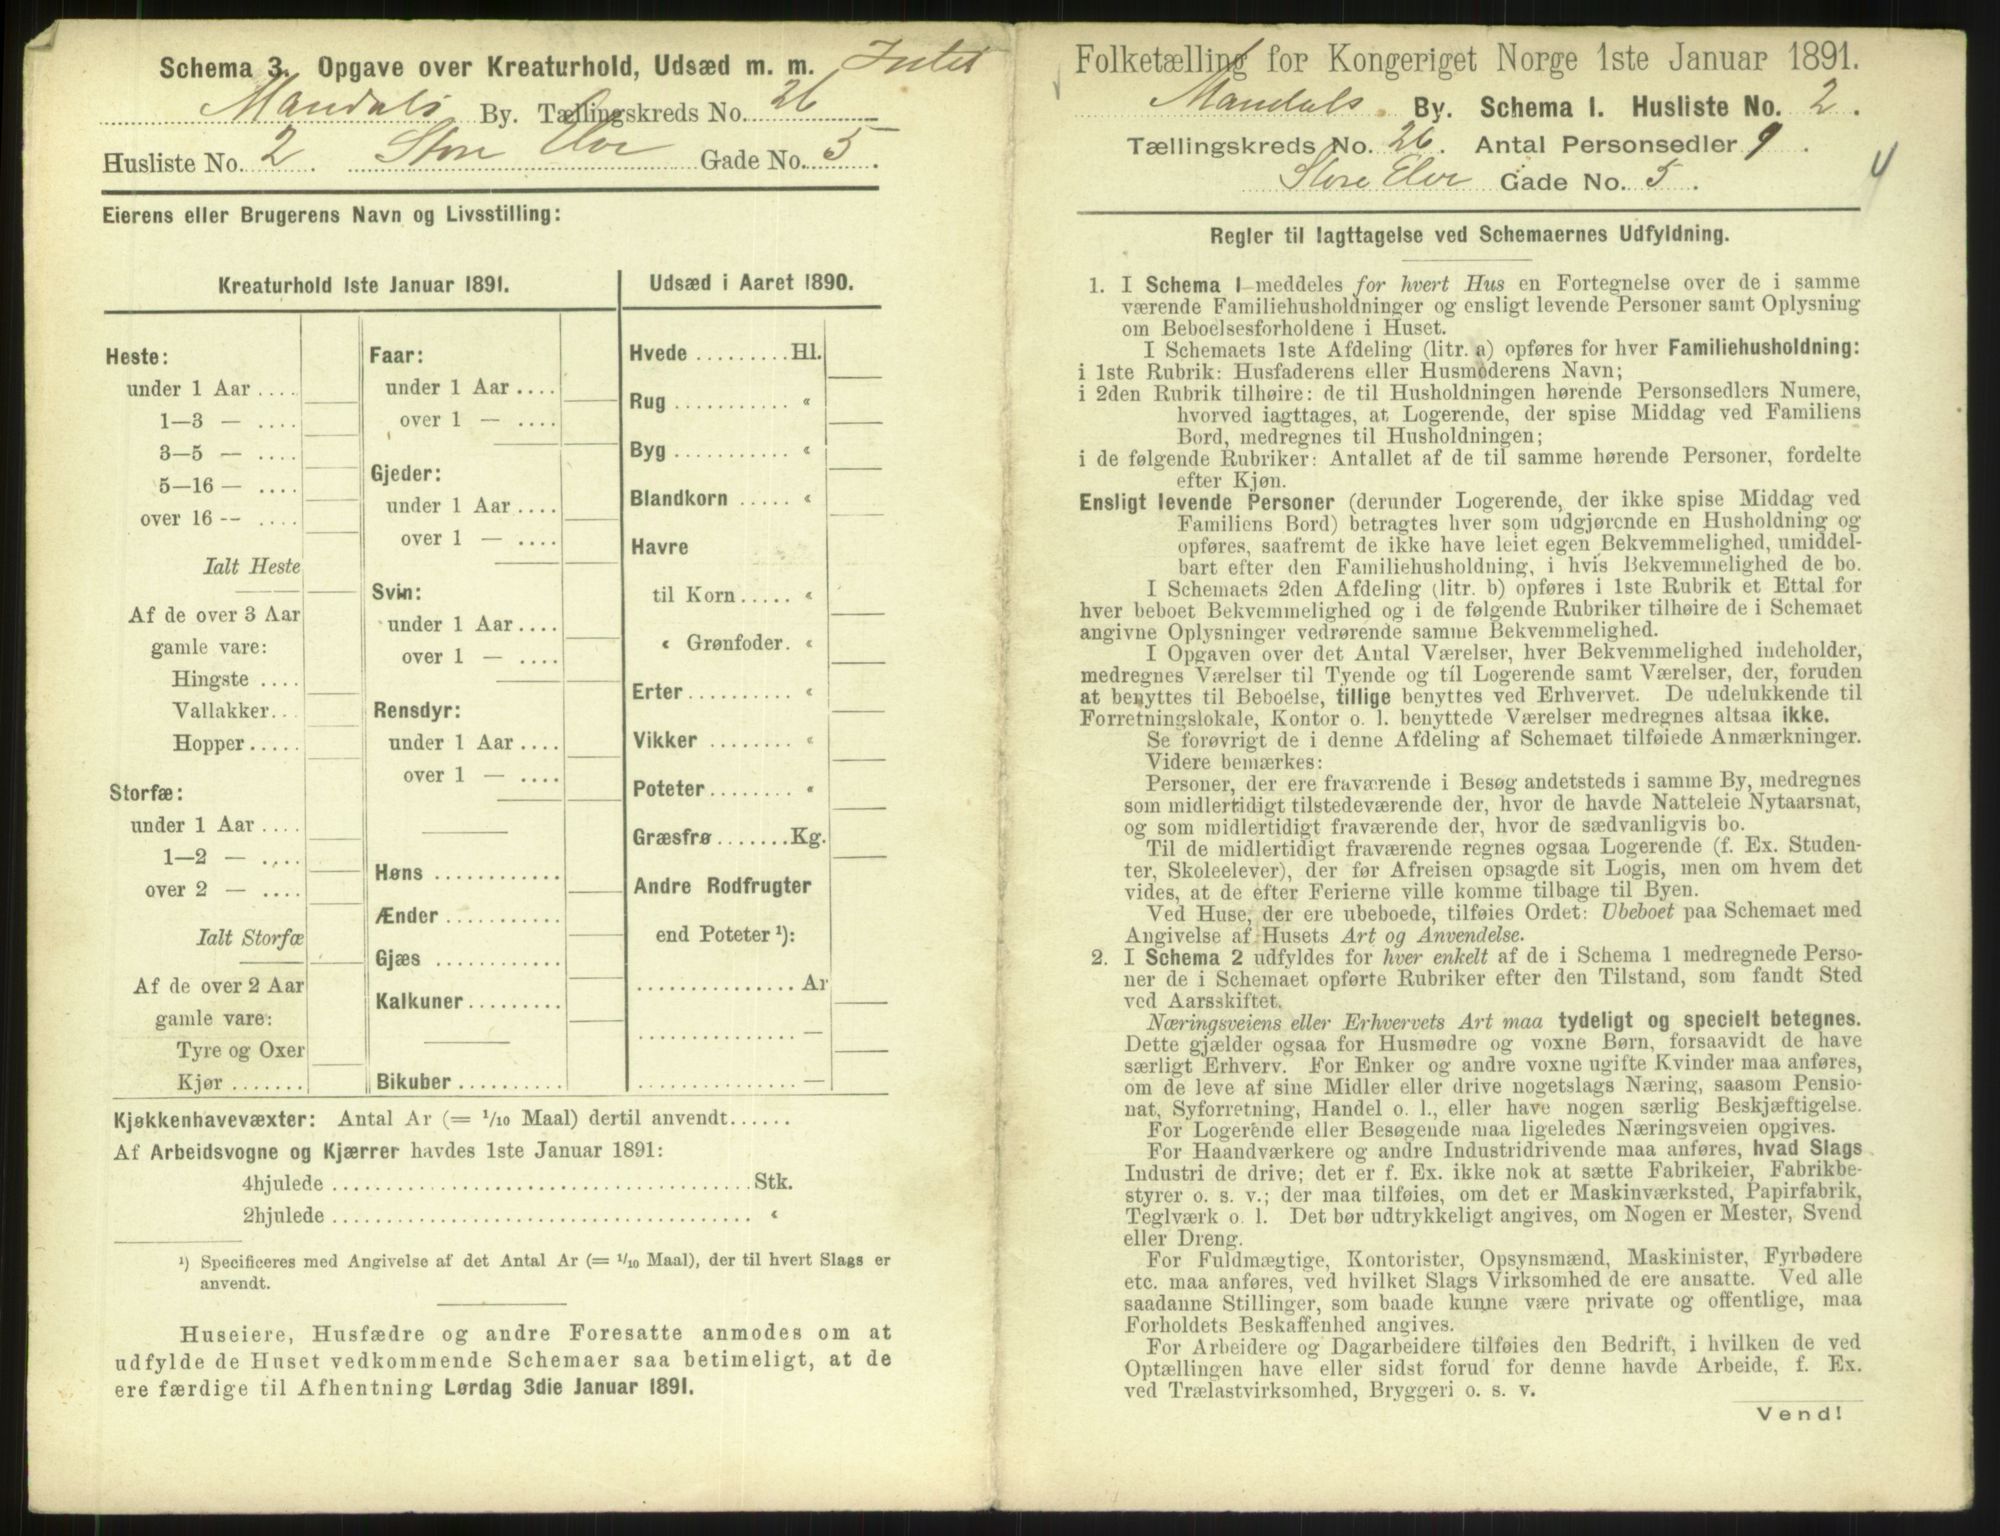 Schema 3. Opgave over Kreaturhold, Udsæd m. m. Intet
Mandals By. Tællingskreds No. 26
Husliste No. 2. Store Elve Gade No. 5.
Eierens eller Brugerens Navn og Livsstilling:
Kreaturhold 1ste Januar 1891.
Heste:
under 1 Aar ....
1—3 — ....
3—5 — ....
5—16 — ....
over 16 -- ....
Ialt Heste
Af de over 3 Aar
gamle vare:
Hingste ....
Vallakker...
Hopper.....
Storfæ:
under 1 Aar ....
1—2 — ....
over 2 — ....
Ialt Storfæ
Af de over 2 Aar
gamle vare:
Tyre og Oxer
Kjør .......
Faar:
under 1 Aar ....
over 1 — ....
Gjeder:
under 1 Aar ....
over 1 — ....
Svin:
under 1 Aar ....
over 1 — ....
Rensdyr:
under 1 Aar ....
over 1 — ....
Høns ............
Ænder ...........
Gjæs ............
Kalkuner.........
Bikuber ..........
Udsæd i Aaret 1890.
Hvede .........Hl.
Rug ........... «
Byg ........... «
Blandkorn ..... «
Havre
til Korn..... «
« Grønfoder. «
Erter .......... «
Vikker ........ «
Poteter........ «
Græsfrø .......Kg.
Andre Rodfrugter
end Poteter ¹):
............... Ar
............... —
............... —
Kjøkkenhavevæxter: Antal Ar (= 1/10 Maal) dertil anvendt......
Af Arbeidsvogne og Kjærrer havdes 1ste Januar 1891:
4hjulede ........................................Stk.
2hjulede ........................................ «
¹) Specificeres med Angivelse af det Antal Ar (= 1/10 Maal), der til hvert Slags er
anvendt.
Huseiere, Husfædre og andre Foresatte anmodes om at
udfylde de Huset vedkommende Schemaer saa betimeligt, at de
ere færdige til Afhentning Lørdag 3die Januar 1891.
Folketælling for Kongeriget Norge 1ste Januar 1891.
Mandals By. Schema I. Husliste No. 2.
Tællingskreds No. 26. Antal Personsedler 9.
4
Store Elve Gade No. 5.
Regler til Iagttagelse ved Schemaernes Udfyldning.
1. I Schema 1 meddeles for hvert Hus en Fortegnelse over de i samme
værende Familiehusholdninger og ensligt levende Personer samt Oplysning
om Beboelsesforholdene i Huset.
I Schemaets 1ste Afdeling (litr. a) opføres for hver Familiehusholdning:
i 1ste Rubrik: Husfaderens eller Husmoderens Navn;
i 2den Rubrik tilhøire: de til Husholdningen hørende Personsedlers Numere,
hvorved iagttages, at Logerende, der spise Middag ved Familiens
Bord, medregnes til Husholdningen;
i de følgende Rubriker: Antallet af de til samme hørende Personer, fordelte
efter Kjøn.
Ensligt levende Personer (derunder Logerende, der ikke spise Middag ved
Familiens Bord) betragtes hver som udgjørende en Husholdning og
opføres, saafremt de ikke have leiet egen Bekvemmelighed, umiddel-
bart efter den Familiehusholdning, i hvis Bekvemmelighed de bo.
I Schemaets 2den Afdeling (litr. b) opføres i 1ste Rubrik et Ettal for
hver beboet Bekvemmelighed og i de følgende Rubriker tilhøire de i Schemaet
angivne Oplysninger vedrørende samme Bekvemmelighed.
I Opgaven over det Antal Værelser, hver Bekvemmelighed indeholder,
medregnes Værelser til Tyende og til Logerende samt Værelser, der, foruden
at benyttes til Beboelse, tillige benyttes ved Erhvervet. De udelukkende til
Forretningslokale, Kontor o. l. benyttede Værelser medregnes altsaa ikke.
Se forøvrigt de i denne Afdeling af Schemaet tilføiede Anmærkninger.
Videre bemærkes:
Personer, der ere fraværende i Besøg andetsteds i samme By, medregnes
som midlertidigt tilstedeværende der, hvor de havde Natteleie Nytaarsnat,
og som midlertidigt fraværende der, hvor de sædvanligvis bo.
Til de midlertidigt fraværende regnes ogsaa Logerende (f. Ex. Studen-
ter, Skoleelever), der før Afreisen opsagde sit Logis, men om hvem det
vides, at de efter Ferierne ville komme tilbage til Byen.
Ved Huse, der ere ubeboede, tilføies Ordet: Ubeboet paa Schemaet med
Angivelse af Husets Art og Anvendelse.
2. I Schema 2 udfyldes for hver enkelt af de i Schema 1 medregnede Perso-
ner de i Schemaet opførte Rubriker efter den Tilstand, som fandt Sted
ved Aarsskiftet.
Næringsveiens eller Erhvervets Art maa tydeligt og specielt betegnes.
Dette gjælder ogsaa for Husmødre og voxne Børn, forsaavidt de have
særligt Erhverv. For Enker og andre voxne ugifte Kvinder maa anføres,
om de leve af sine Midler eller drive nogetslags Næring, saasom Pensio-
nat, Syforretning, Handel o. l., eller have nogen særlig Beskjæftigelse.
For Logerende eller Besøgende maa ligeledes Næringsveien opgives.
For Haandværkere og andre Industridrivende maa anføres, hvad Slags
Industri de drive; det er f. Ex. ikke nok at sætte Fabrikeier, Fabrikbe-
styrer o. s. v.; der maa tilføies, om det er Maskinværksted, Papirfabrik,
Teglværk o. l. Det bør udtrykkeligt angives, om Nogen er Mester, Svend
eller Dreng.
For Fuldmægtige, Kontorister, Opsynsmænd, Maskinister, Fyrbødere
etc. maa anføres, ved hvilket Slags Virksomhed de ere ansatte. Ved alle
saadanne Stillinger, som baade kunne være private og offentlige, maa
Forholdets Beskaffenhed angives.
For Arbeidere og Dagarbeidere tilføies den Bedrift, i hvilken de ved
Optællingen have eller sidst forud for denne havde Arbeide, f. Ex.
ved Trælastvirksomhed, Bryggeri o. s. v.
Vend!